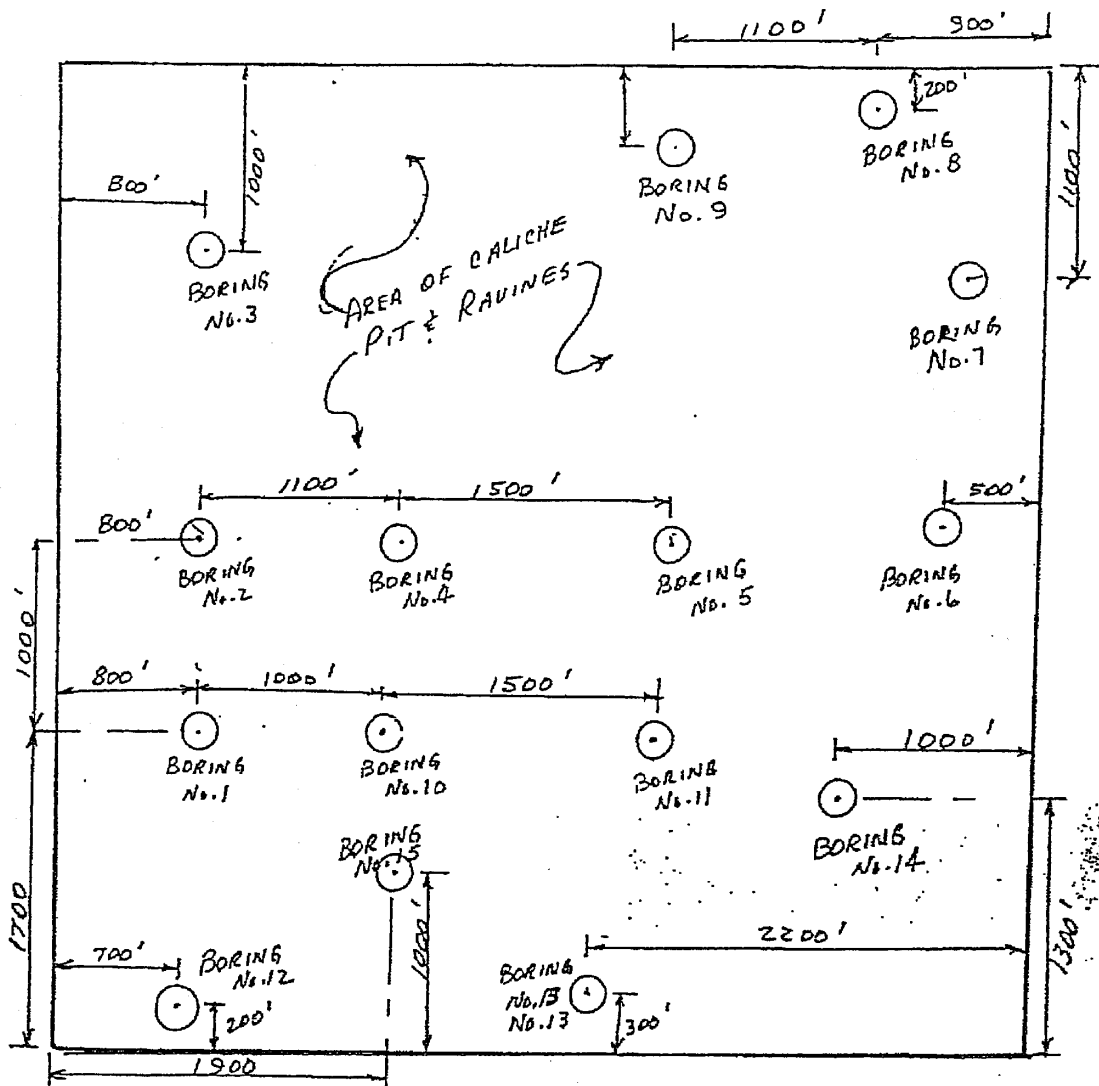 1100'
900'
200'
1100'
BORING
No. 8
BORING
No. 9
800'
1000'
BORING
No. 3
AREA OF CALICHE
PIT & RAVINES
BORING
No. 7
1100'
1500'
500'
800'
BORING
No. 2
BORING
No. 4
BORING
No. 5
BORING
No. 6
1000'
800'
1000'
1500'
1000'
BORING
No. 1
BORING
No. 10
BORING
No. 11
BORING
No. 14
BORING
No. 15
1700
1000'
2200'
1300'
700'
BORING
No. 12
200'
BORING
No. 13
No. 13
300'
1900